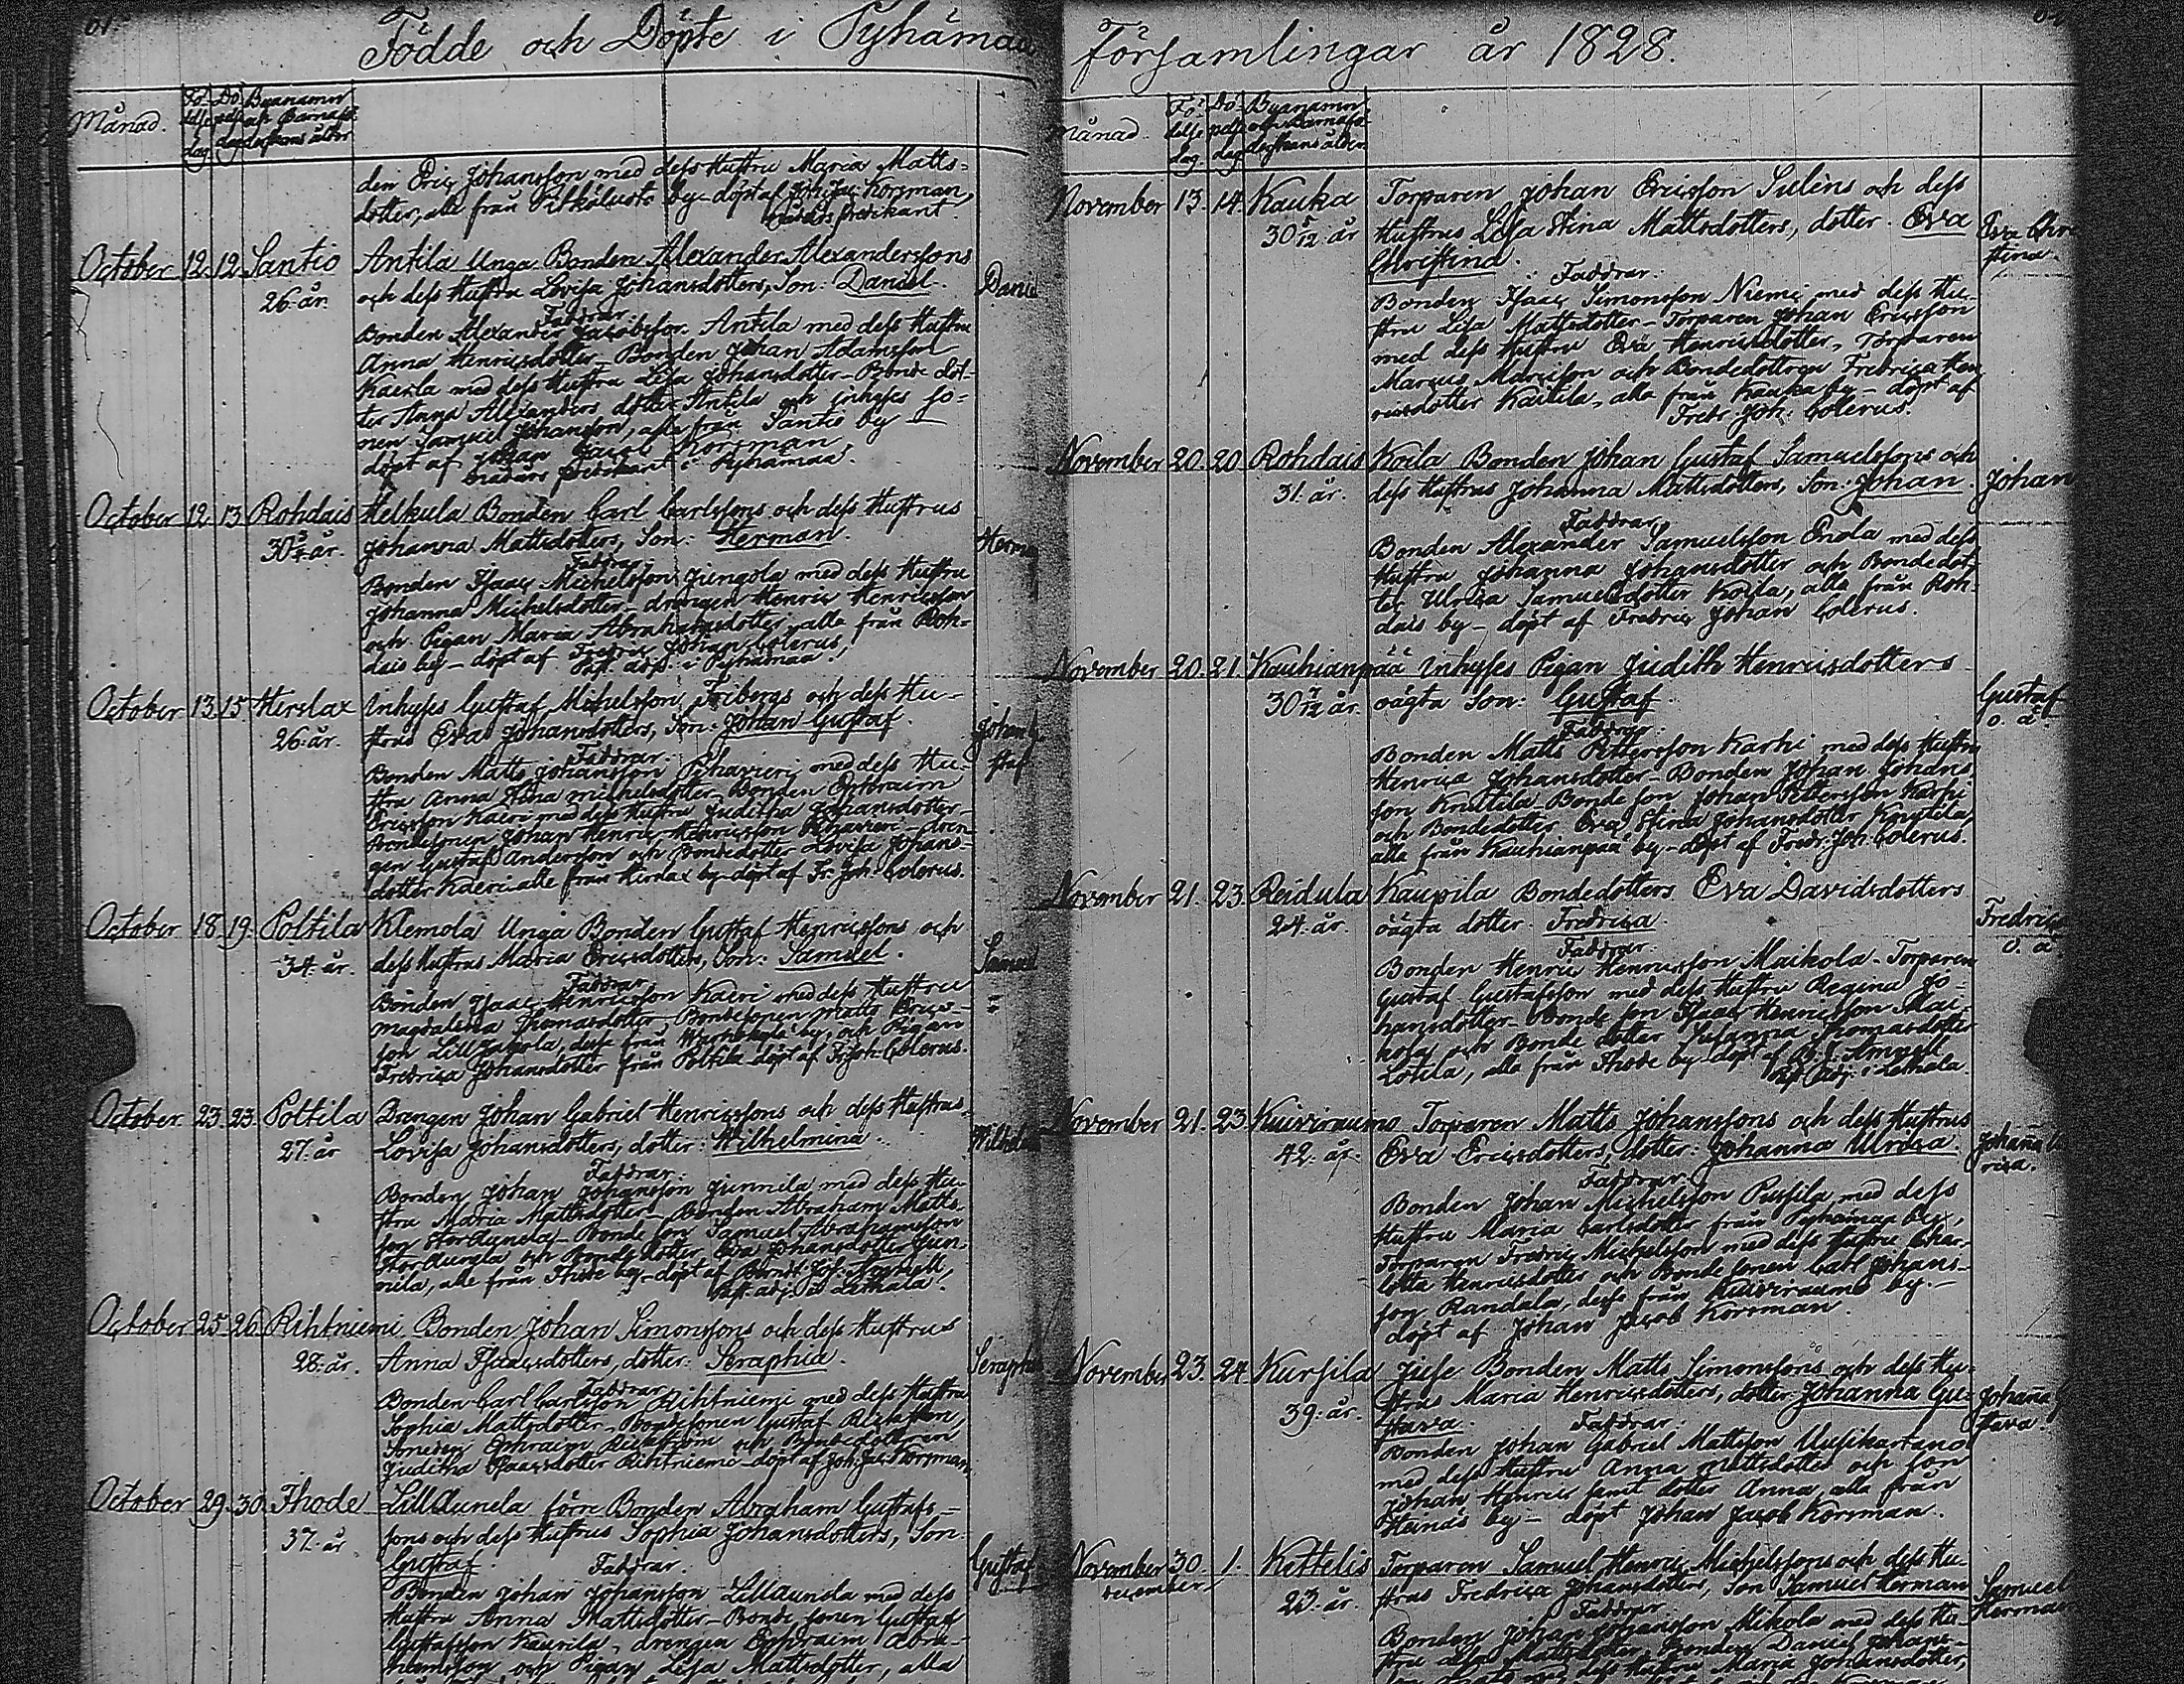 61.
Födde och Döpte i Pyhämaa
Månad. Fö- delse dag Dö- pelse dag Byanamn och Barnaföderskans ålder
den Eric Johansson med dess Hustru Maria Matts-
dotter, alla från Pitkäluoto by - döpt af Joh. Jac. Korsman,
Predikant.
October 12. 12. Santio Antila Unga Bonden Alexander Alexanderssons
26. år. och dess Hustru Lovisa Johansdotters, Son: Daniel. Daniel
Faddrar.
Bonden Alexander Jacobsson Antila med dess Hustru
Anna Henricsdotter - Bonden Johan Adamsson
Kaerla med dess Hustru Lisa Johansdotter - Bonde dot-
ter Anna Alexanders dotter Antila och inhyses so-
nen Samuel Johansson, alla från Santio by -
döpt af Johan Jacob Korsman,
Predikant i Pyhämaa.
October 12. 13. Rohdais Helkula Bonden Carl Carlssons och dess Hustrus
30 år. Johanna Mattsdotters, Son: Herman. Herman
Faddrar.
Bonden Isaac Michelsson Jungola med dess Hustru
Johanna Michelsdotter - drengen Henric Henricsson
och Pigan Maria Abrahamsdotter, alla från Roh-
dais by - döpt af Fredric Johan Colerus,
Past. adj. i Pyhämaa.
October 13. 15. Herslax Inhyses Gustaf Michelsson Fribergs och dess Hu-
26. år. strus Eva Johansdotters, Son: Johan Gustaf. Johan Gu-
staf
Faddrar.
Bonden Matts Johansson Pihavieri med dess Hu-
stru Anna Stina Michelsdotter - Bonden Ephraim
Ericsson Kaeri med dess Hustru Juditha Johansdotter -
Bondesonen Johan Henric Henricsson Pihavieri - dren-
gen Gustaf Andersson och Bondedotter Lovisa Johans-
dotter Kaeri - alla från Herslax by - döpt af Fr. Joh. Colerus.
October 18. 19. Poltila Klemola Unga Bonden Gustaf Henricssons och
34. år. dess Hustrus Maria Ericsdotters, Son: Samuel. Samuel
Faddrar
Bonden Isaac Henricsson Kaeri med dess Hustru
Magdalena Thomasdotter - Bondesonen Matts Erics-
son Lill Jaakola, desse från by, och Pigan
Fredrica Johansdotter från Poltila - döpt af Fr. Joh. Colerus.
October 23. 23. Poltila Drengen Johan Gabriel Henricssons och dess Hustrus
27. år Lovisa Johansdotters, dotter: Wilhelmina. Wilhelm
Faddrar.
Bonden Johan Johansson Junnila med dess Hu-
stru Maria Mattsdotter - Bonden Abraham Matts-
son Stor Aunela - Bonde son Samuel Abrahamsson
Stor Aunela och Bonde dotter Eva Johansdotter Jun-
nila, alla från Ihode by - döpt af Berndt Joh. Amnell
Past. adj. i Lethala.
October 25. 26. Rihtniemi Bonden Johan Simonssons och dess Hustrus
28. år. Anna Isaacsdotters, dotter: Seraphia. Seraphia
Faddrar
Bonden Carl Carlsson Rihtniemi med dess Hustru
Sophia Mattsdotter - Bondesonen Gustaf
Ephraim och Bondedotteren
Juditha Isaacsdotter Rihtniemi - döpt af Joh. Jac. Korsman
October 29. 30. Ihode Lill Aunela förre Bonden Abraham Gustafs-
37. år sons och dess Hustrus Sophia Johansdotters, Son
Gustaf. Gustaf
Faddrar.
Bonden Johan Johansson Lill Aunola med dess
Hustru Anna Mattsdotter - Bonde sonen Gustaf
Gustafsson Kaurila, drengen Ephraim Abra-
hamsson och Pigan Lisa Mattsdotter, alla
Församlingar år 1828.
Månad. Fö- delse dag Dö- pelse dag Byanamn och Barnaföderskans ålder
November 13. 14. Kauka Torparen Johan Ericsson Sulins och dess
30 5/12 år Hustrus Lisa Stina Mattsdotters, dotter. Eva Eva Chri
Christina. stina.
Faddrar.
Bonden Isaac Simonsson Niemi med dess Hu-
stru Lisa Mattsdotter - Torparen Johan Ericsson
med dess Hustru Eva Henricsdotter, Torparen
Marcus Marcsson och Bondedottren Fredrica Hen-
ricsdotter Kaitila, alla från Kauka by - döpt af
Fredr. Joh. Colerus.
November 20. 20 Rohdais Koila Bonden Johan Gustaf Samuelssons och
31. år. dess Hustrus Johanna Mattsdotters, Son: Johan. Johan
Faddrar,
Bonden Alexander Samuelsson Enola med dess
Hustru Johanna Johansdotter och Bonde dot-
ter Ulrica Samuelsdotter Koila, alla från Roh-
dais by - döpt af Fredric Johan Colerus.
November 20. 21. Kauhianpää Inhyses Pigan Judith Henricsdotters
30 7/12 år. oägta Son: Gustaf Gustaf
o. ä
Faddrar.
Bonden Matts Pettersson Karhi med dess Hustru
Henrica Johansdotter - Bonden Johan Johans-
son Knuttila Bonde son Johan Pettersson Karhi
och Bondedotter Eva Stina Johansdotter Knuttila,
alla från Kauhianpää by - döpt af Fredr. Joh. Colerus.
November 21. 23. Reidula Kaupila Bondedotters Eva Davidsdotters
24. år. oägta dotter. Fredrica Fredrica
o. ä
Faddrar.
Bonden Henric Henricsson Maikola - Torparen
Gustaf Gustafsson med dess Hustru Regina Jo-
hansdotter - Bonde son Isaac Henricsson Mai-
kola, och Bonde dotter Susanna Thomasdotter
Lotila, alla från Ihode by - döpt af B. J. Amnell
Past. Adj. i Lethala
November 21. 23. Kuiviraumo Torparen Matts Johanssons och dess Hustrus
42. år. Eva Ericsdotters, dotter: Johanna Ulrica. Johanna Ul
rica.
Faddrar.
Bonden Johan Michelsson Pussila med dess
Hustru Maria Carlsdotter från Pyhämaa by,
Torparen Fredric Michelsson med dess Hustru Char-
lotta Henricsdotter och Bonde sonen Carl Johans-
son Randala, desse från Kuiviraumo by. -
döpt af Johan Jacob Korsman.
November 23. 24. Kursila Juse Bonden Matts Simonssons och dess Hu-
39. år. strus Maria Henricsdotters, dotter Johanna Gu- Johanna Gu
stava. stava.
Faddrar.
Bonden Johan Gabriel Mattsson Uusikartano
med dess Hustru Anna Mattsdotter och son
Johan Henric samt dotter Anna, alla från
Heinäs by - döpt Johan Jacob Korsman.
November 30 1. Kettelis Torparen Samuel Henric Michelssons och dess Hu-
december
23. år. strus Fredrica Johansdotters, Son Samuel Herman Samuel
Herman
Faddrar
Bonden Johan Johansson Mikola med dess Hu-
stru Lisa Mattsdotter, Bonden Daniel Johans-
son med dess Hustru Maria Johansdotter,